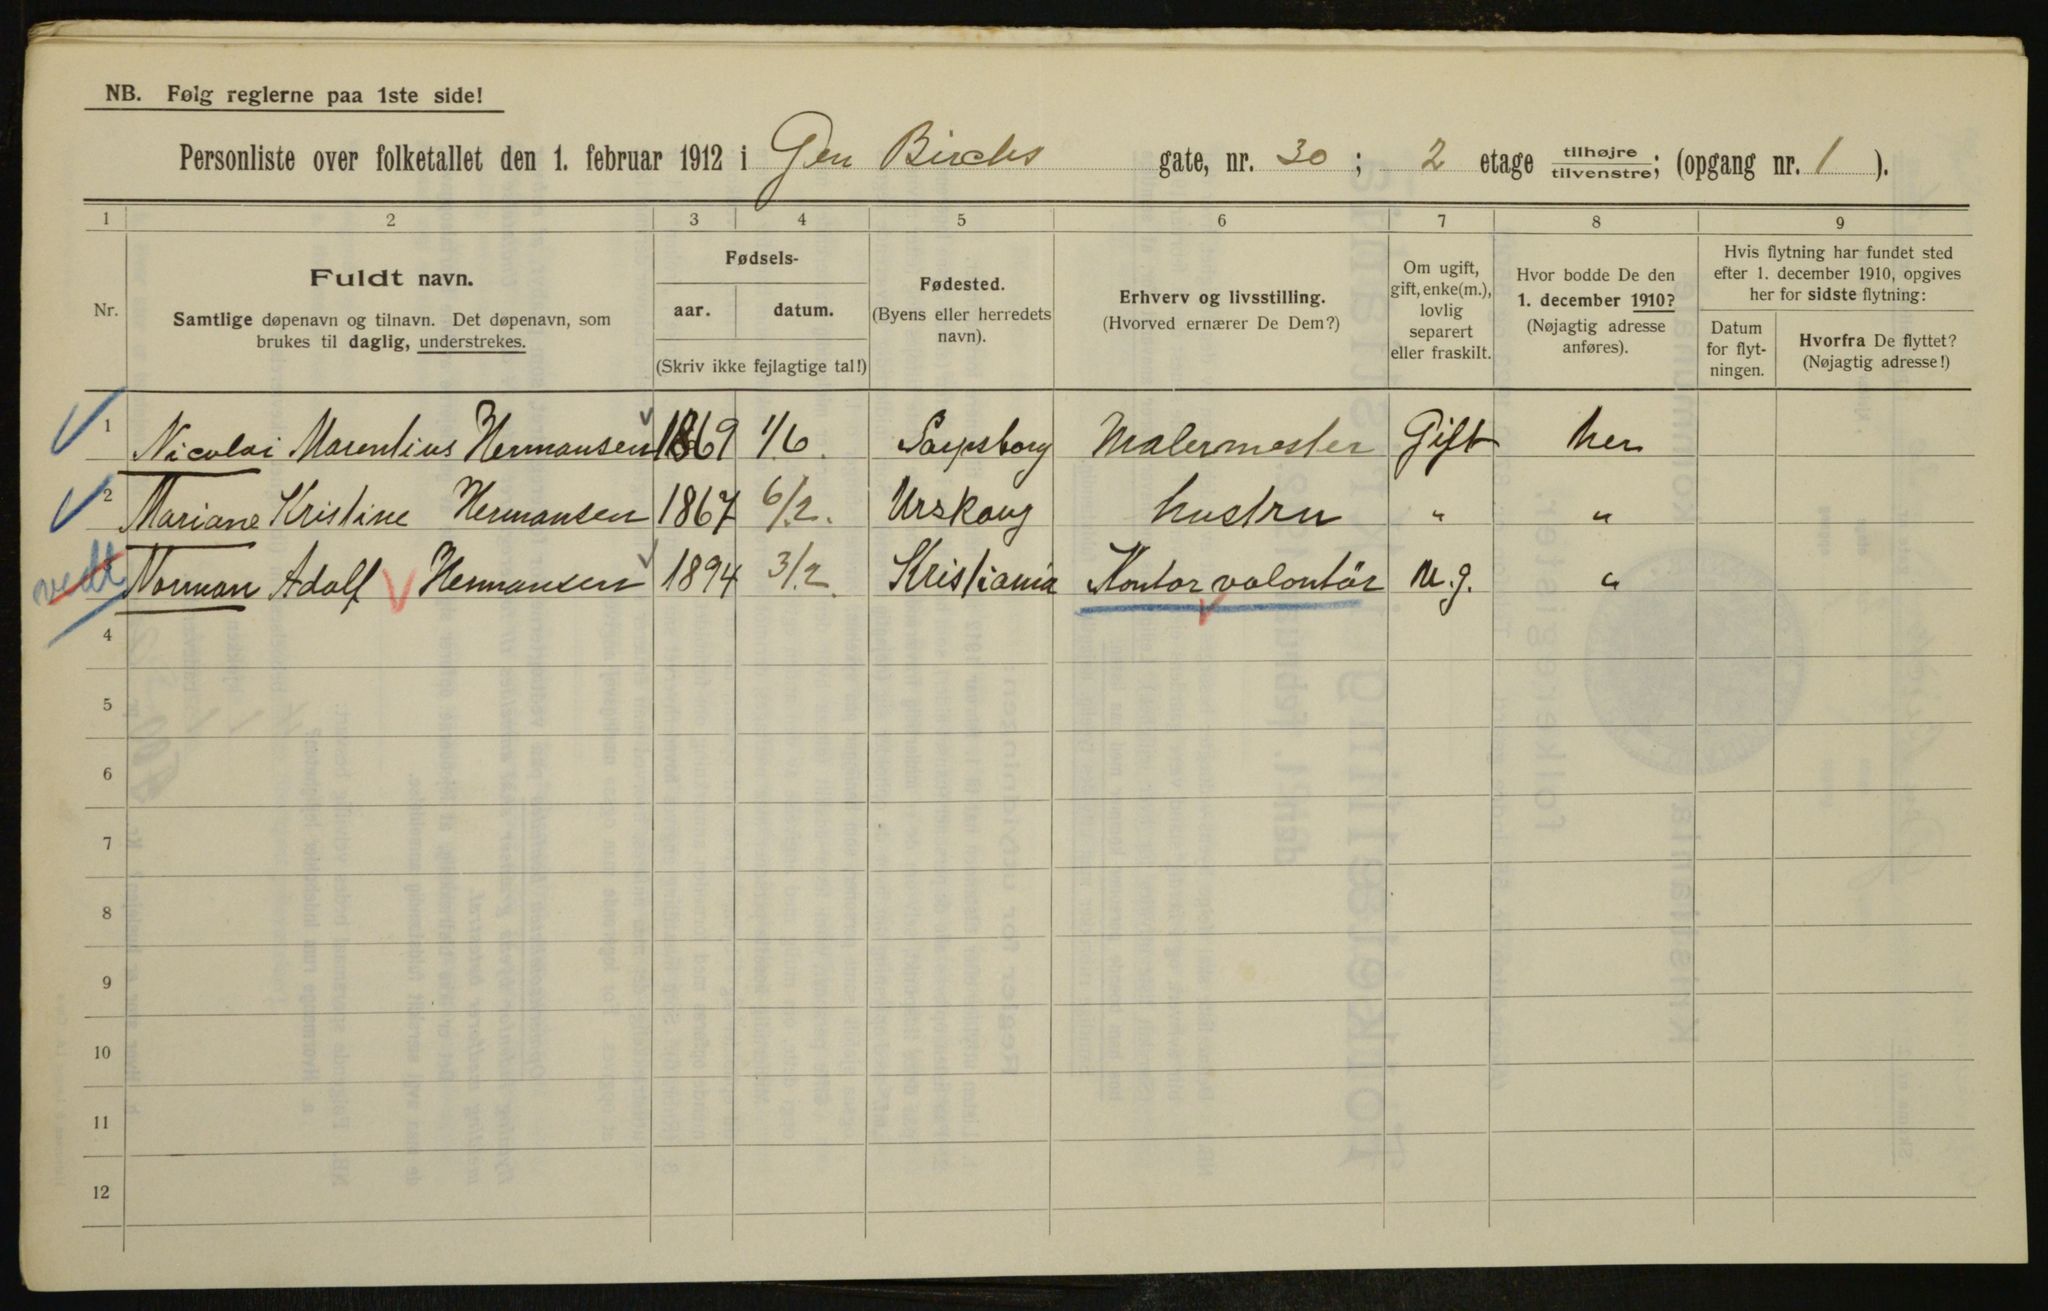 NB. Følg reglerne paa 1ste side!
Personliste over folketallet den 1. februar 1912 i Gen Birchs gate, nr. 30 ; 2 etage tilhøjre tilvenstre; (opgang nr. 1 ).
1 2 3 4 5 6 7 8 9
Nr.
Fuldt navn.
Samtlige døpenavn og tilnavn. Det døpenavn, som
brukes til daglig, understrekes.
Fødsels-
aar. datum.
(Skriv ikke fejlagtige tal!)
Fødested.
(Byens eller herredets
navn).
Erhverv og livsstilling.
(Hvorved ernærer De Dem?)
Om ugift,
gift, enke(m.),
lovlig
separert
eller fraskilt.
Hvor bodde De den
1. december 1910?
(Nøjagtig adresse
anføres).
Hvis flytning har fundet sted
efter 1. december 1910, opgives
her for sidste flytning:
Datum
for flyt-
ningen.
Hvorfra De flyttet?
(Nøjagtig adresse!)
1 Nicolai Marentius Hermansen 1869 1/6. Sarpsborg Malermester Gift her
2 Mariane Kristine Hermansen 1867 6/2. Urskoug hustru " "
vedt 3 Norman Adolf Hermansen 1894 3/2. Kristiania Kontorvolontör u.g. "
4
5
6
7
8
9
10
11
12